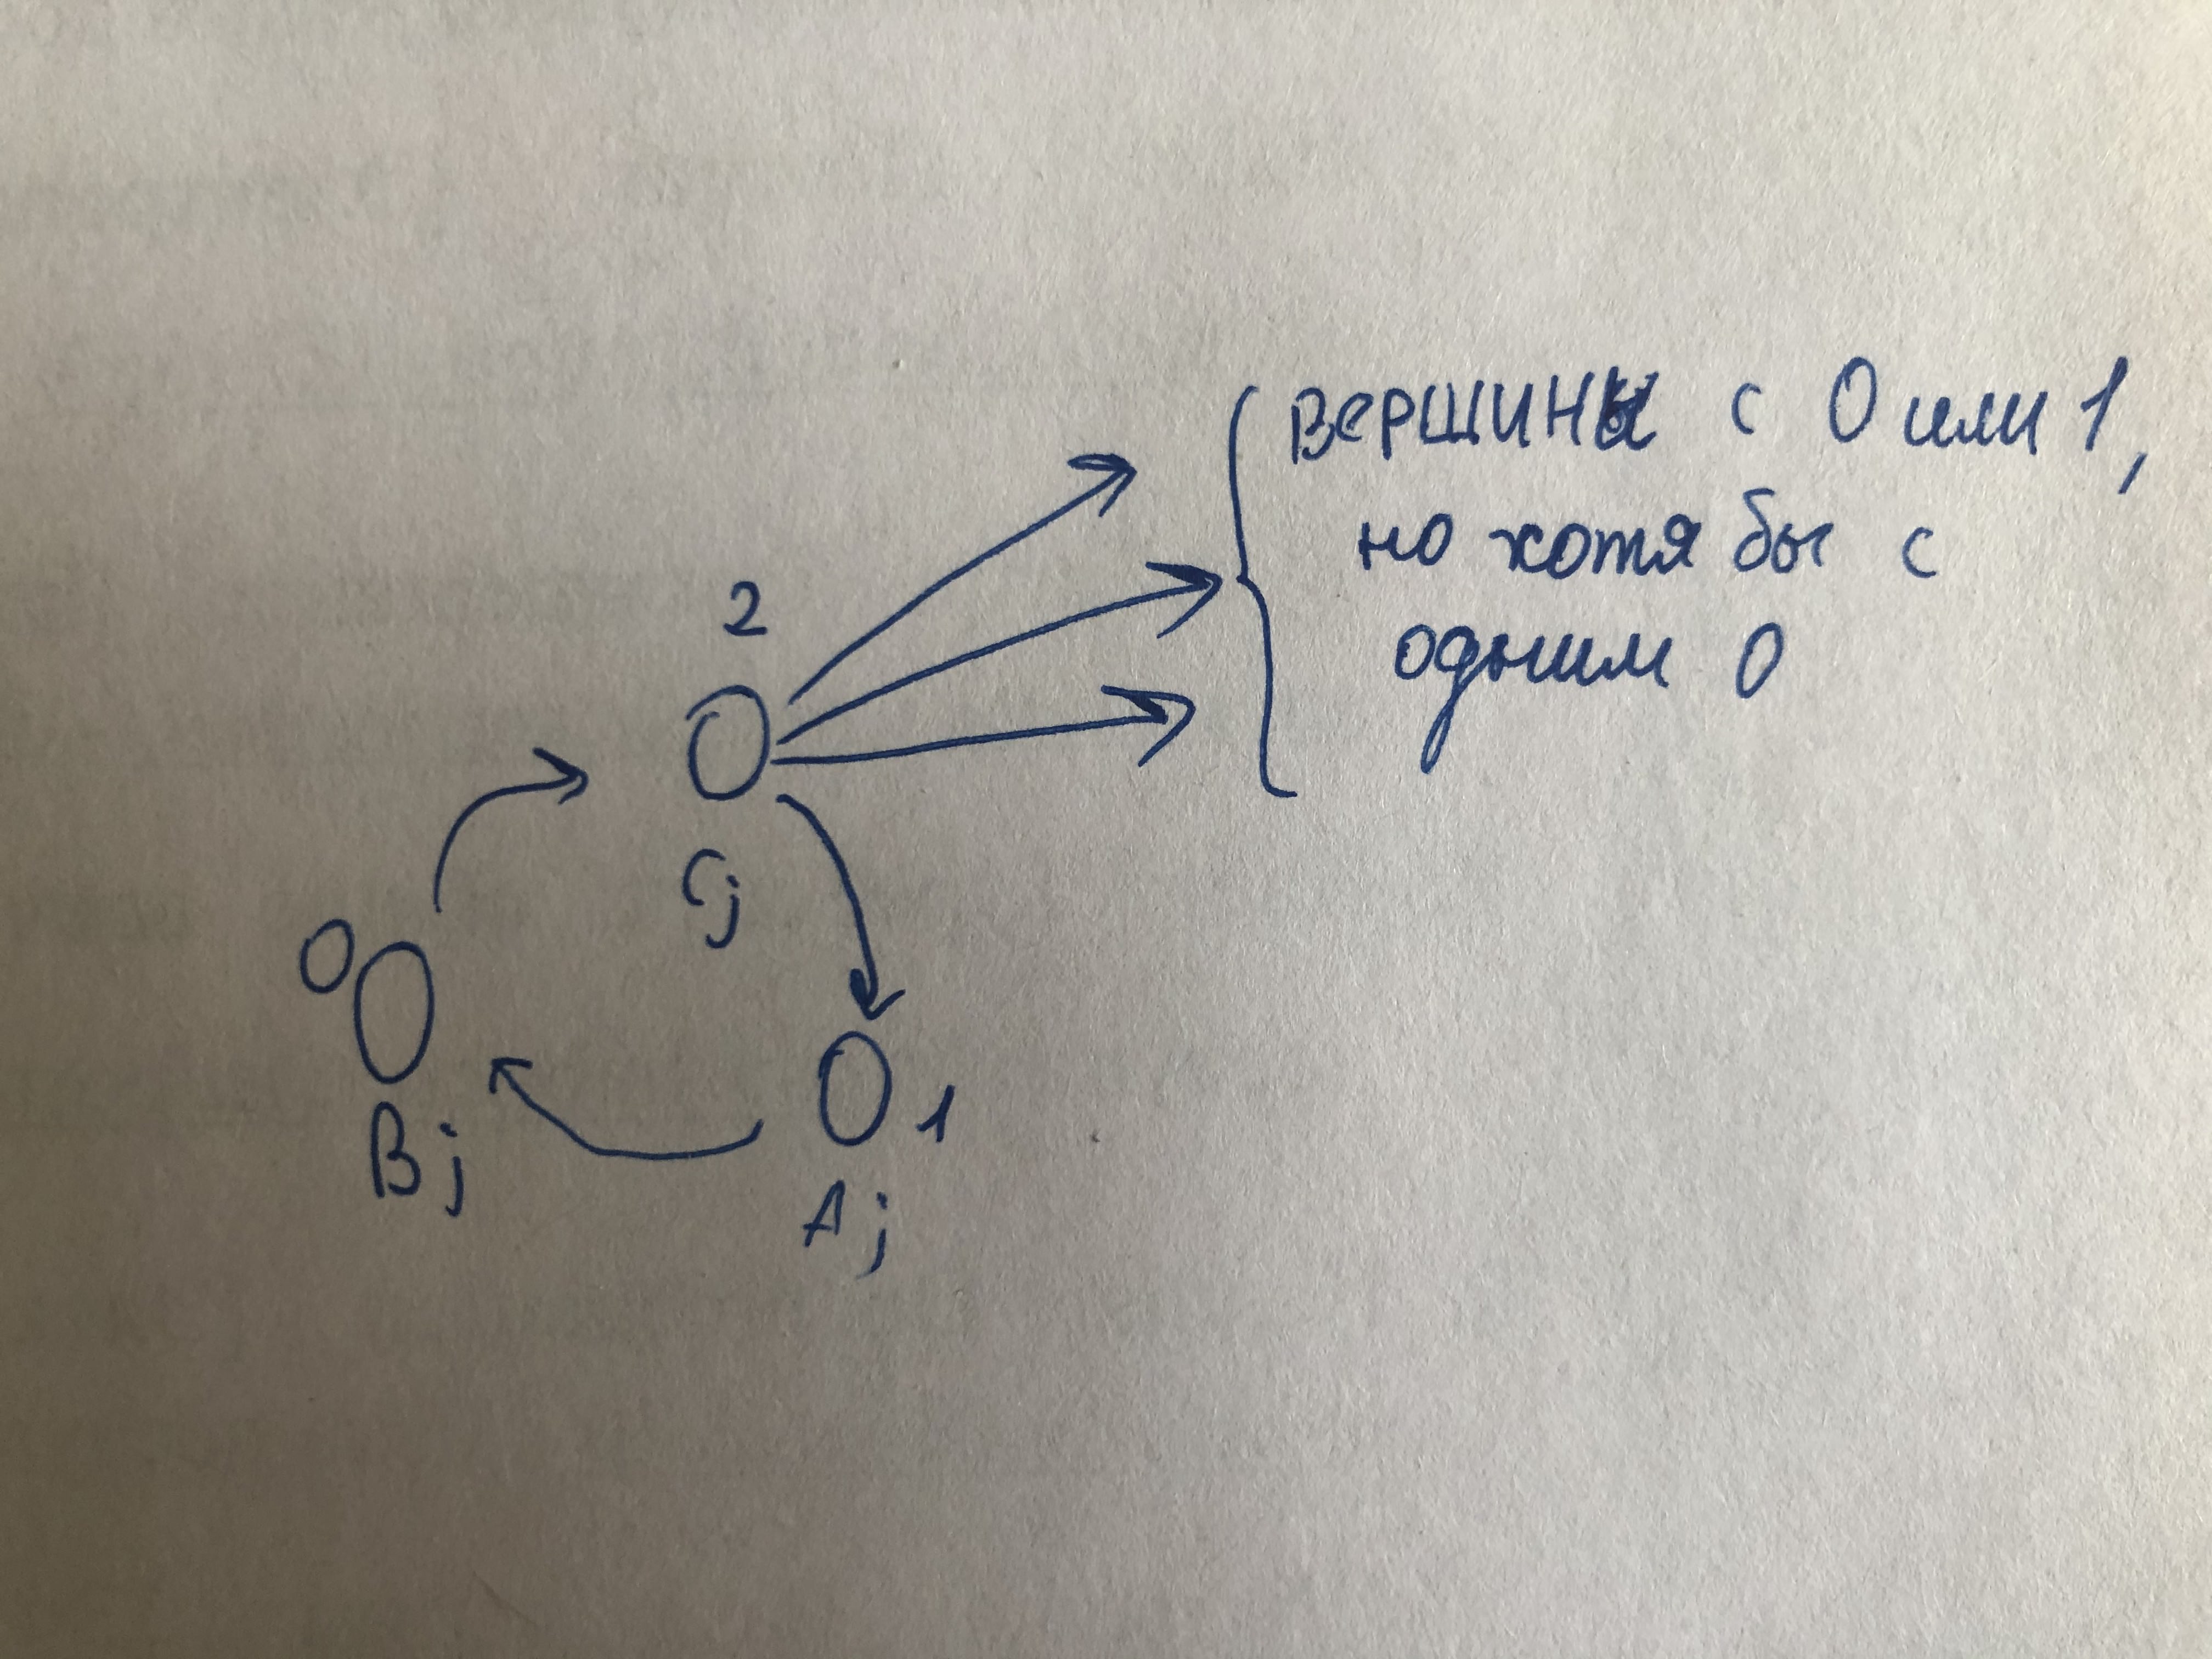 вершины с 0 или 1,
но хотя бы с
одним 0
2
Cj
0
Bj
1
Aj